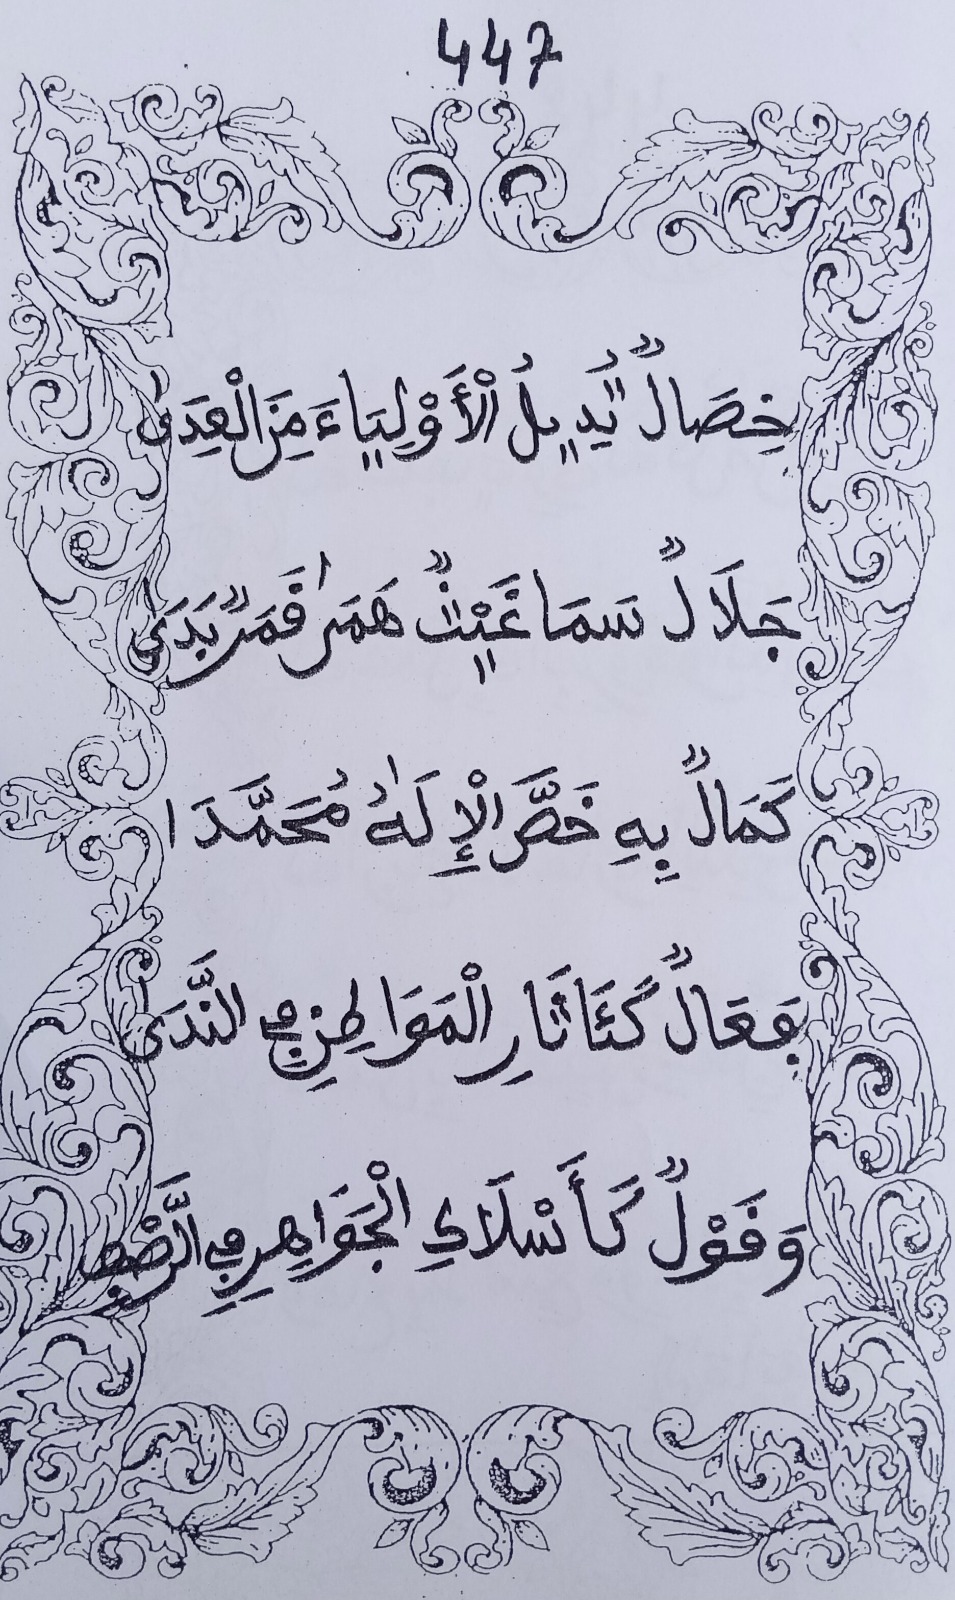 447
خِصَالٌ يُدِيلُ الْأَوْلِيَاءَ مِنَ الْعِدَى
جَلَالٌ سَمَا غَيْثٌ هَمَى قَمَرٌ بَدَى
كَمَالٌ بِهِ خَصَّ الْإِلَهُ مُحَمَّدَا
فِعَالٌ كَئَاثَارِ الْمَوَاطِنِ فِي النَّدَى
وَقَوْلٌ كَأَسْلَاكِ الْجَوَاهِرِ فِي